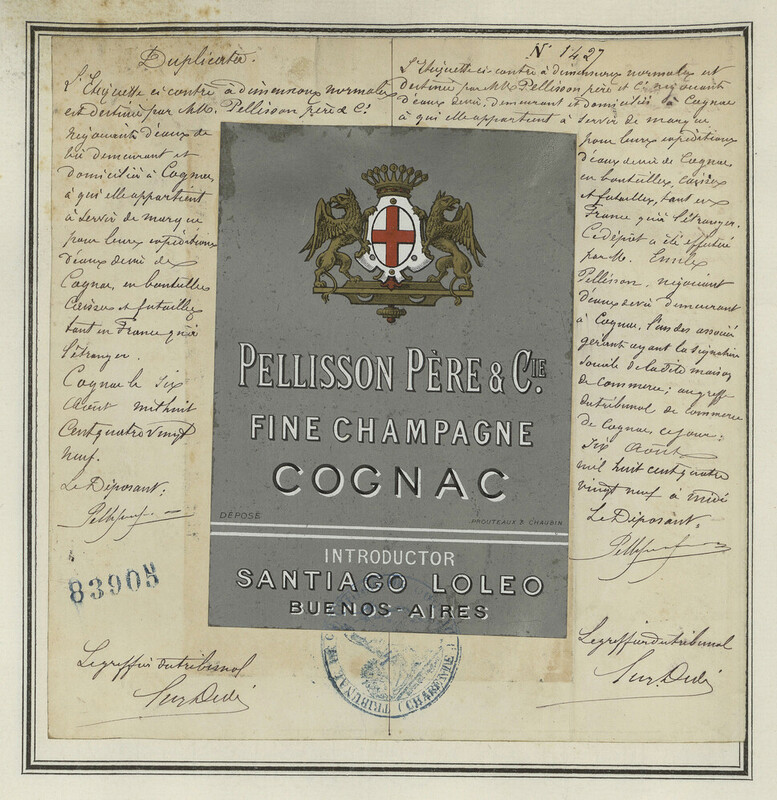 Duplicata.
L'Etiquette ci-contre à dimensions normales
est destinée par MM. Pellisson père & Cie
négociants d'eaux de
vie demeurant et
domiciliés à Cognac
à qui elle appartient
à servir de marque
pour leurs expéditions
d'eaux de vie de
Cognac, en bouteilles
Caisses et futailles
tant en France qu'à
l'étranger.
Cognac le Six
Août mil huit
Cent quatre vingt
neuf.
Le Déposant:
83905
Le greffier du tribunal
N° 1427
L'Etiquette ci-contre à dimensions normales est
destinée par MM. Pellisson père et Cie négociants
d'eaux de vie, demeurant et domiciliés à Cognac
à qui elle appartient à servir de marque
pour leurs expéditions
d'eaux de vie de Cognac
en bouteilles, caisses
et futailles, tant en
France qu'à l'étranger.
Ce dépôt a été effectué
par M. Emile
Pellisson, négociant
d'eaux de vie demeurant
à Cognac, l'un des associés
gérant ayant la signature
sociale de la dite maison
de commerce; au greffe
du tribunal de commerce
de Cognac, ce jour:
Six Août
mil huit cent quatre
vingt neuf à midi
Le Déposant,
Le greffier du tribunal
PELLISSON PÈRE & CIE.
FINE CHAMPAGNE
COGNAC
DÉPOSÉ
PROUTEAUX & CHAUBIN
INTRODUCTOR
SANTIAGO LOLEO
BUENOS-AIRES
TRIBUNAL
(CHARENTE)